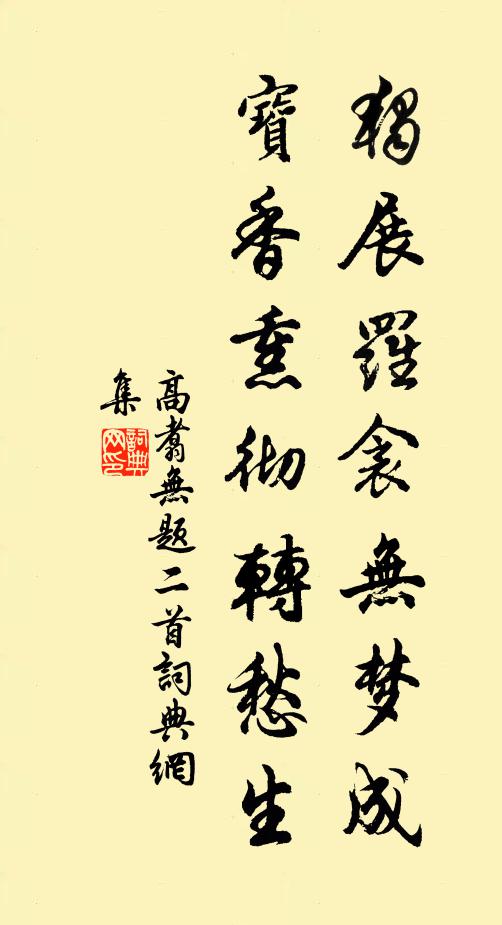 獨展羅衾無梦成
寶香熏彻轉愁生
高翥無题二首詞典網
集
詞典
网印